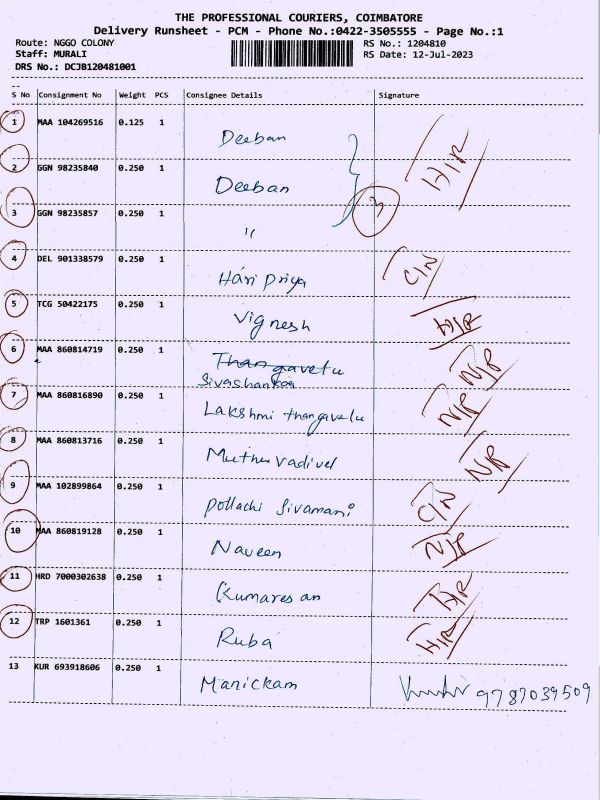 THE PROFESSIONAL COURIERS, COIMBATORE
Delivery Runsheet - PCM - Phone No.:0422-3505555 - Page No.:1
Route: NGGO COLONY RS No.: 1204810
Staff: MURALI RS Date: 12-Jul-2023
DRS No.: DCJB120481001
--
S No Consignment No Weight PCS Consignee Details Signature
1 MAA 104269516 0.125 1 Deeban
2 GGN 98235840 0.250 1 Deeban H/R
3 GGN 98235857 0.250 1 " 3
4 DEL 901338579 0.250 1 Hari priya C/N
5 TCG 50422175 0.250 1 Vignesh H/R
6 MAA 860814719 0.250 1 Thangavelu N/R
Sivashankar
7 MAA 860816890 0.250 1 Lakshmi thangavelu N/R
8 MAA 860813716 0.250 1 Muthuvadivel N/R
9 MAA 102899864 0.250 1 pollachi Sivamani C/N
10 MAA 860819128 0.250 1 Naveen N/R
11 HRD 7000302638 0.250 1 Kumaresan H/R
12 TRP 1601361 0.250 1 Ruba H/R
13 KUR 693918606 0.250 1 Manickam 9787039509